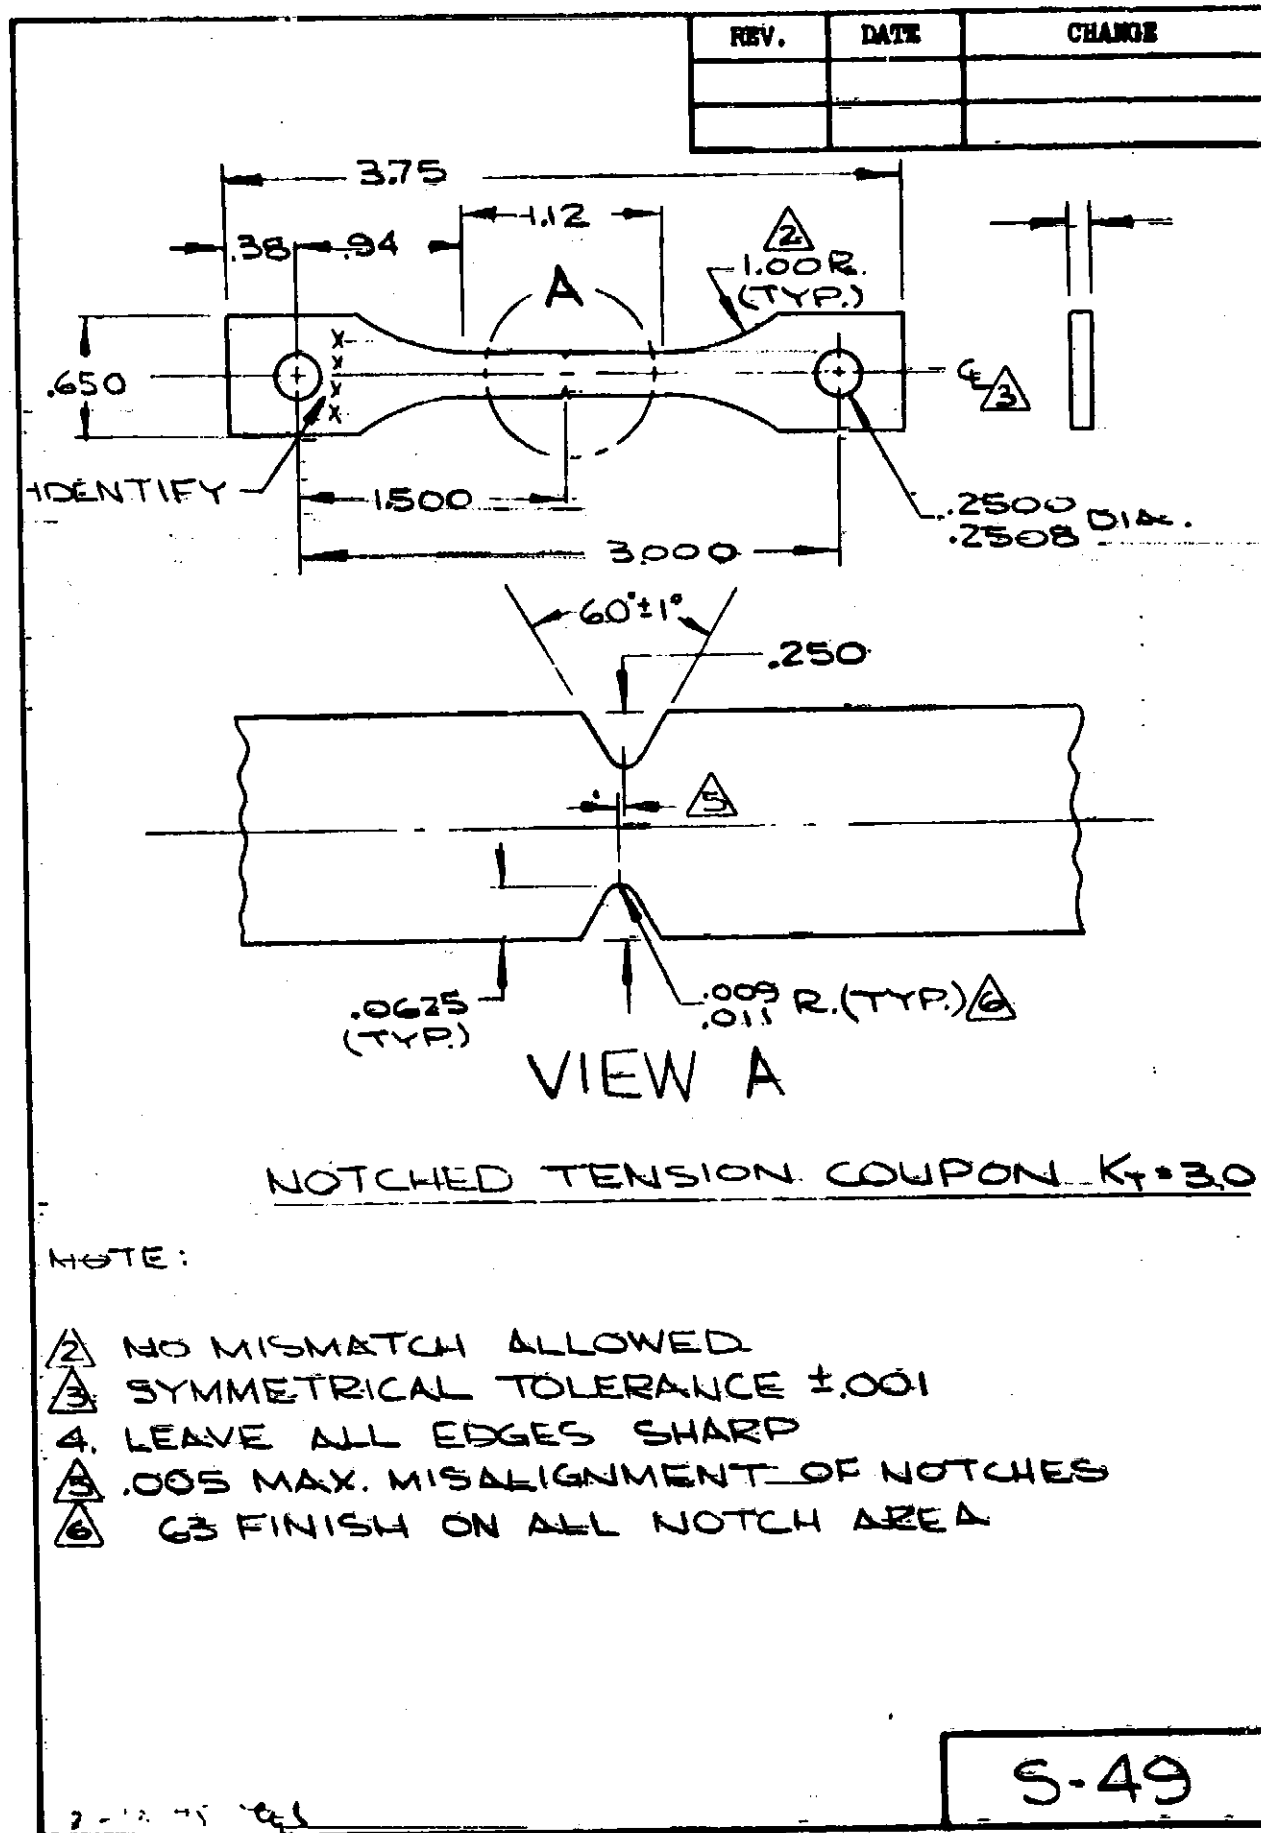 REV. DATE CHANGE
3.75
1.12
.38 .94
2
1.00 R.
(TYP.)
A
X
X
X
X
.650
℄ 3
IDENTIFY
1.500
.2500
.2508 DIA.
3.000
60°±1°
.250
5
.0625
(TYP.)
.009
.011 R. (TYP.) 6
VIEW A
NOTCHED TENSION COUPON KT=3.0
NOTE:
2 NO MISMATCH ALLOWED
3 SYMMETRICAL TOLERANCE ±.001
4. LEAVE ALL EDGES SHARP
5 .005 MAX. MISALIGNMENT OF NOTCHES
6 63 FINISH ON ALL NOTCH AREA
S-49